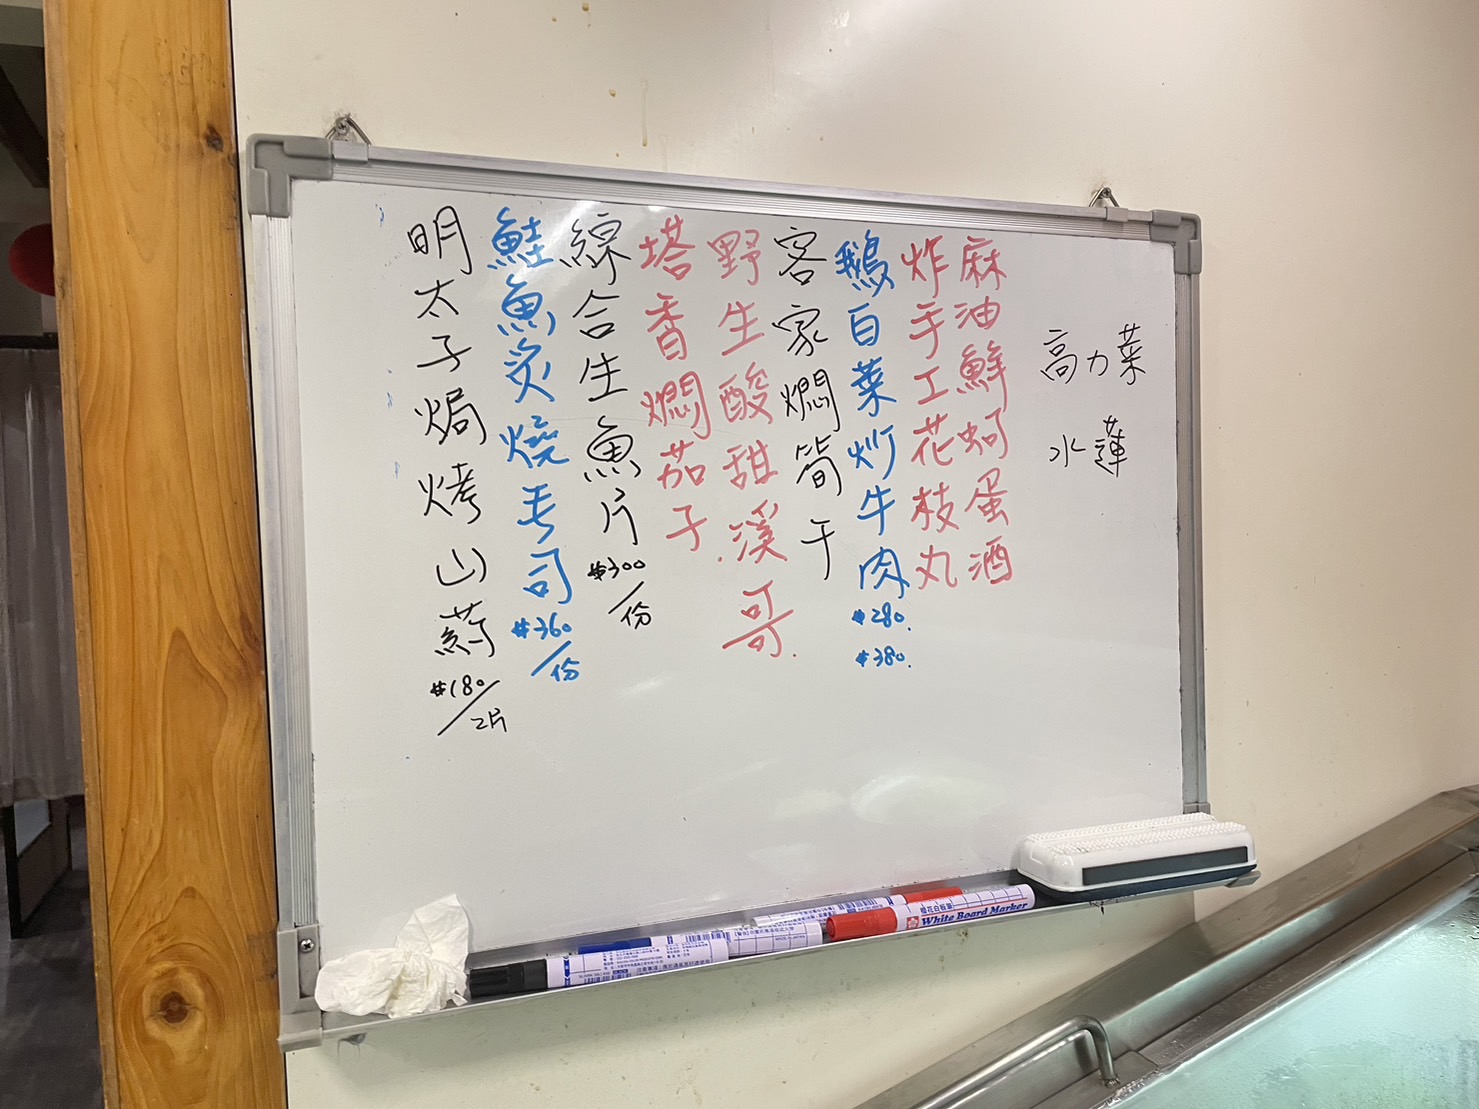 高力菜
水蓮
麻油鮮蚵蛋酒
炸手工花枝丸
鵝白菜炒牛肉
$280.
$380.
客家燜筍干
野生酸甜溪哥.
塔香燜茄子.
綜合生魚片
$300/份
鮭魚炙燒寿司
$360/份
明太子焗烤山葯
$180/2片
White Board Marker